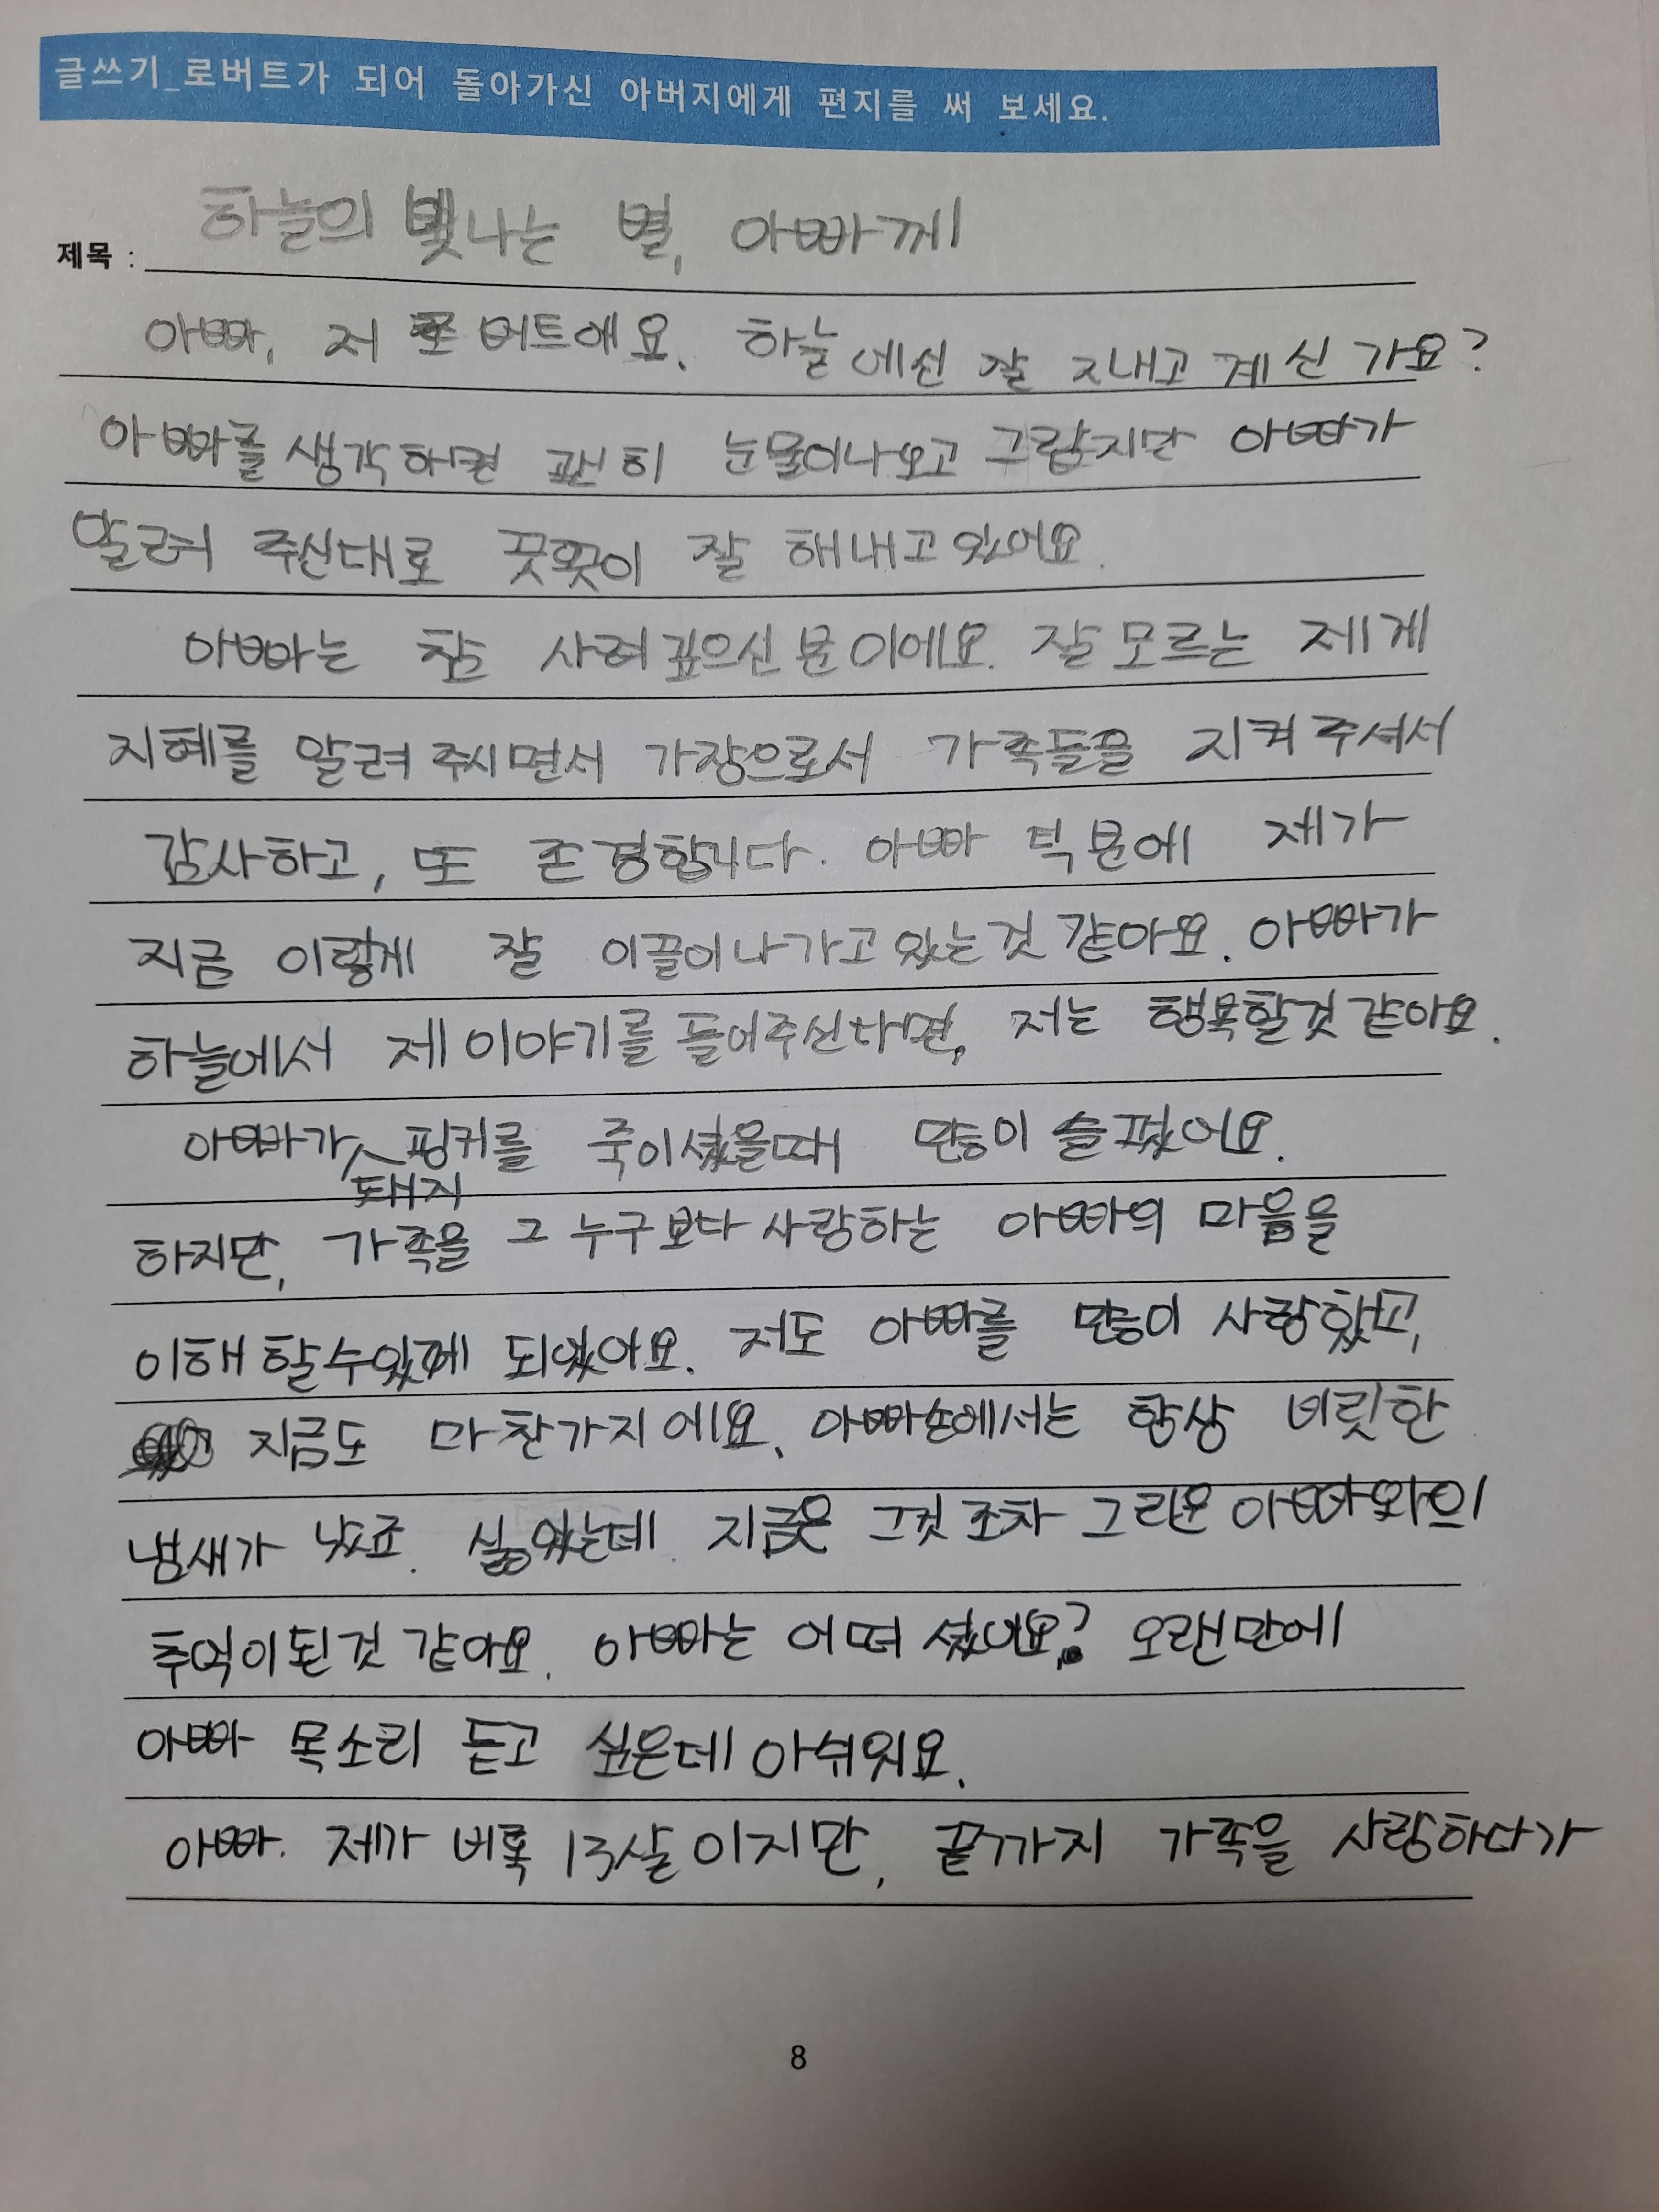 글쓰기_로버트가 되어 돌아가신 아버지에게 편지를 써 보세요.
제목 : 하늘의 빛나는 별, 아빠께
아빠, 저 로버트에요. 하늘에선 잘 지내고 계신가요?
아빠를 생각하면 괜히 눈물이나오고 그립지만 아빠가
알려 주신대로 꿋꿋이 잘 해내고있어요.
아빠는 참 사려깊으신분이에요. 잘모르는 제게
지혜를 알려주시면서 가장으로서 가족들을 지켜주셔서
감사하고, 또 존경합니다. 아빠 덕분에 제가
지금 이렇게 잘 이끌어나가고있는것 같아요. 아빠가
하늘에서 제이야기를 들어주신다면, 저는 행복할것같아요.
아빠가 돼지 핑키를 죽이셨을때 많이 슬펐어요.
하지만, 가족을 그 누구보다 사랑하는 아빠의 마음을
이해할수있게 되었어요. 저도 아빠를 많이 사랑했고,
지금도 마찬가지에요. 아빠손에서는 항상 비릿한
냄새가 났죠. 싫었는데 지금은 그것조차 그리운 아빠와의
추억이된것 같아요. 아빠는 어떠셨어요? 오랜만에
아빠 목소리 듣고 싶은데 아쉬워요.
아빠. 제가 비록 13살이지만, 끝까지 가족을 사랑하다가
8